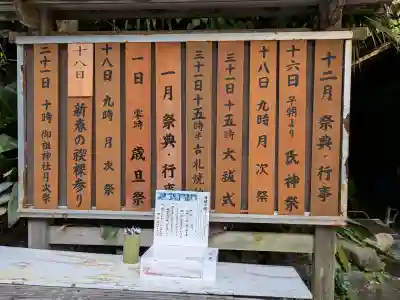 十二月 祭典・行事
十六日 早朝より 氏神祭
十八日 九時 月次祭
三十一日 十五時 大祓式
三十一日 十五時半 古札焼
一月 祭典・行事
一日 零時 歳旦祭
十八日 九時 月次祭
十八日 新春の裸参り
二十一日 十時 御祖神社月次祭